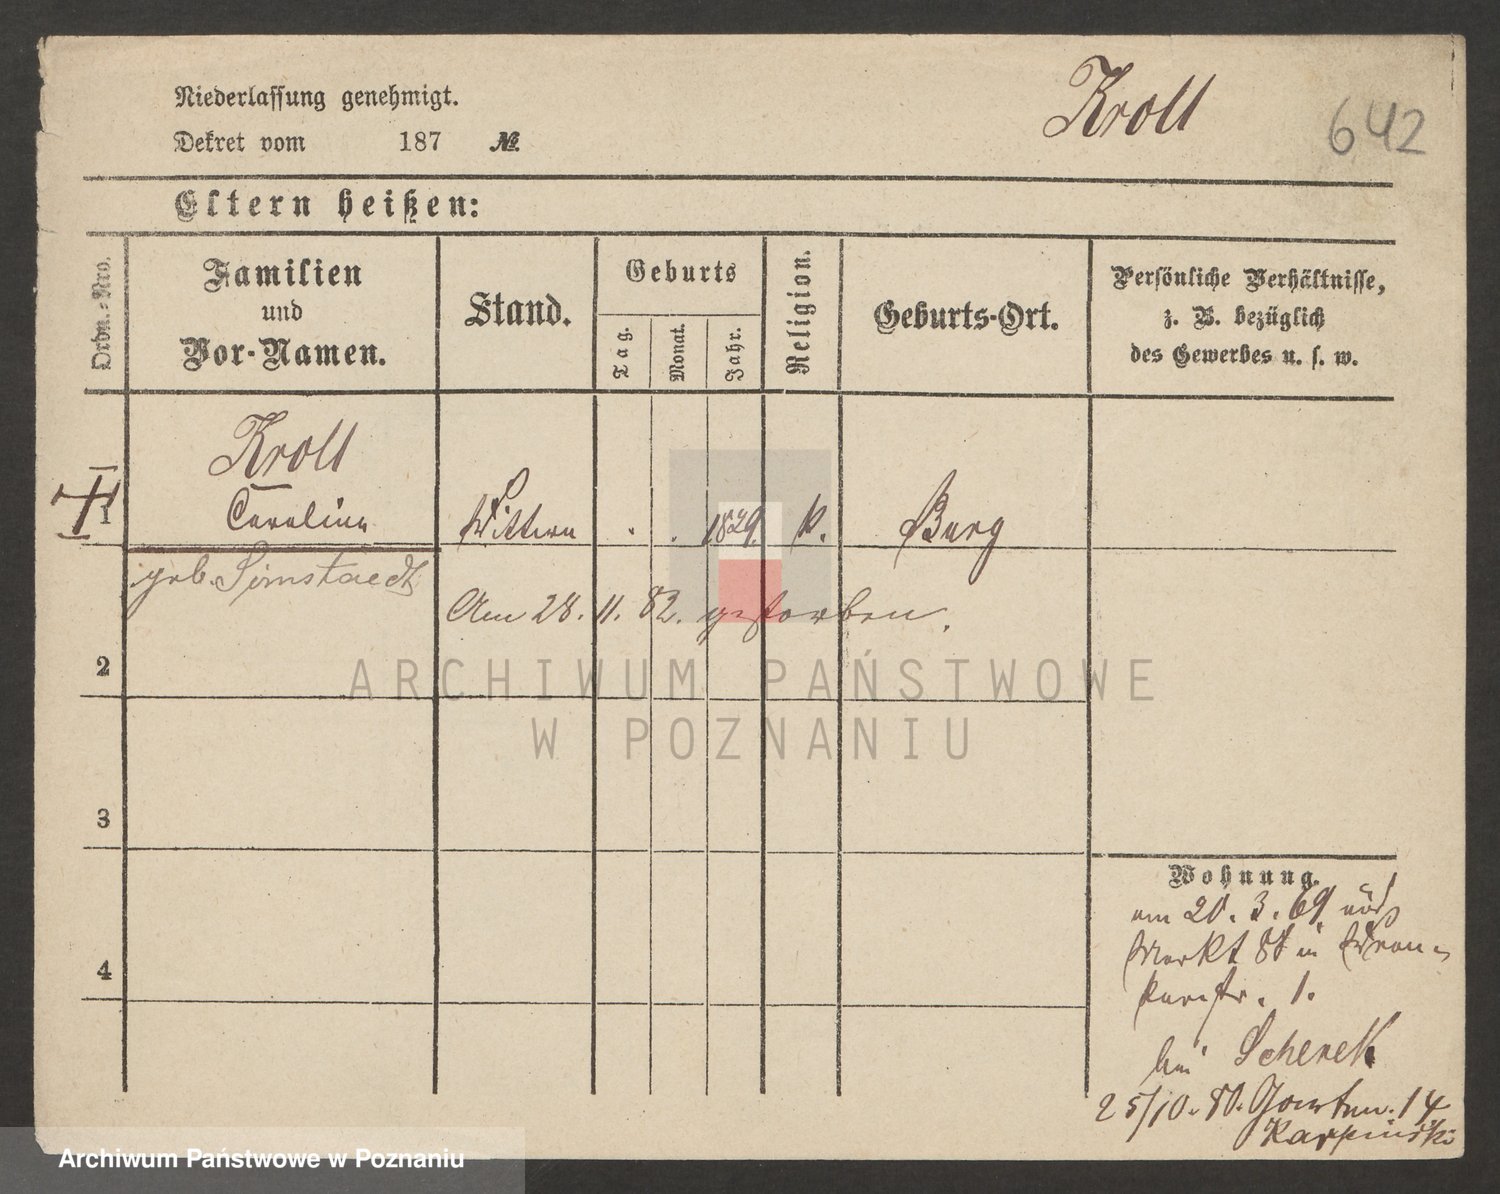 Niederlassung genehmigt.
Dekret vom 187 №
Kroll
642
Eltern heißen:
Ordn.-Nro.
Familien
und
Vor-Namen.
Stand.
Geburts
Tag.
Monat.
Jahr.
Religion.
Geburts-Ort.
Persönliche Verhältnisse,
z. B. bezüglich
des Gewerbes u. s. w.
Kroll
1 Caroline Wittwe . . 1829. k. Burg
geb. Simstaedt
Am 28. 11. 82. gestorben.
2
3
4
Wohnung.
am 20. 3. 69
Markt 81 in Wron-
kerstr. 1.
bei Scherek
25/10. 80. 14
Karpinski
ARCHIWUM PAŃSTWOWE
W POZNANIU
Archiwum Państwowe w Poznaniu